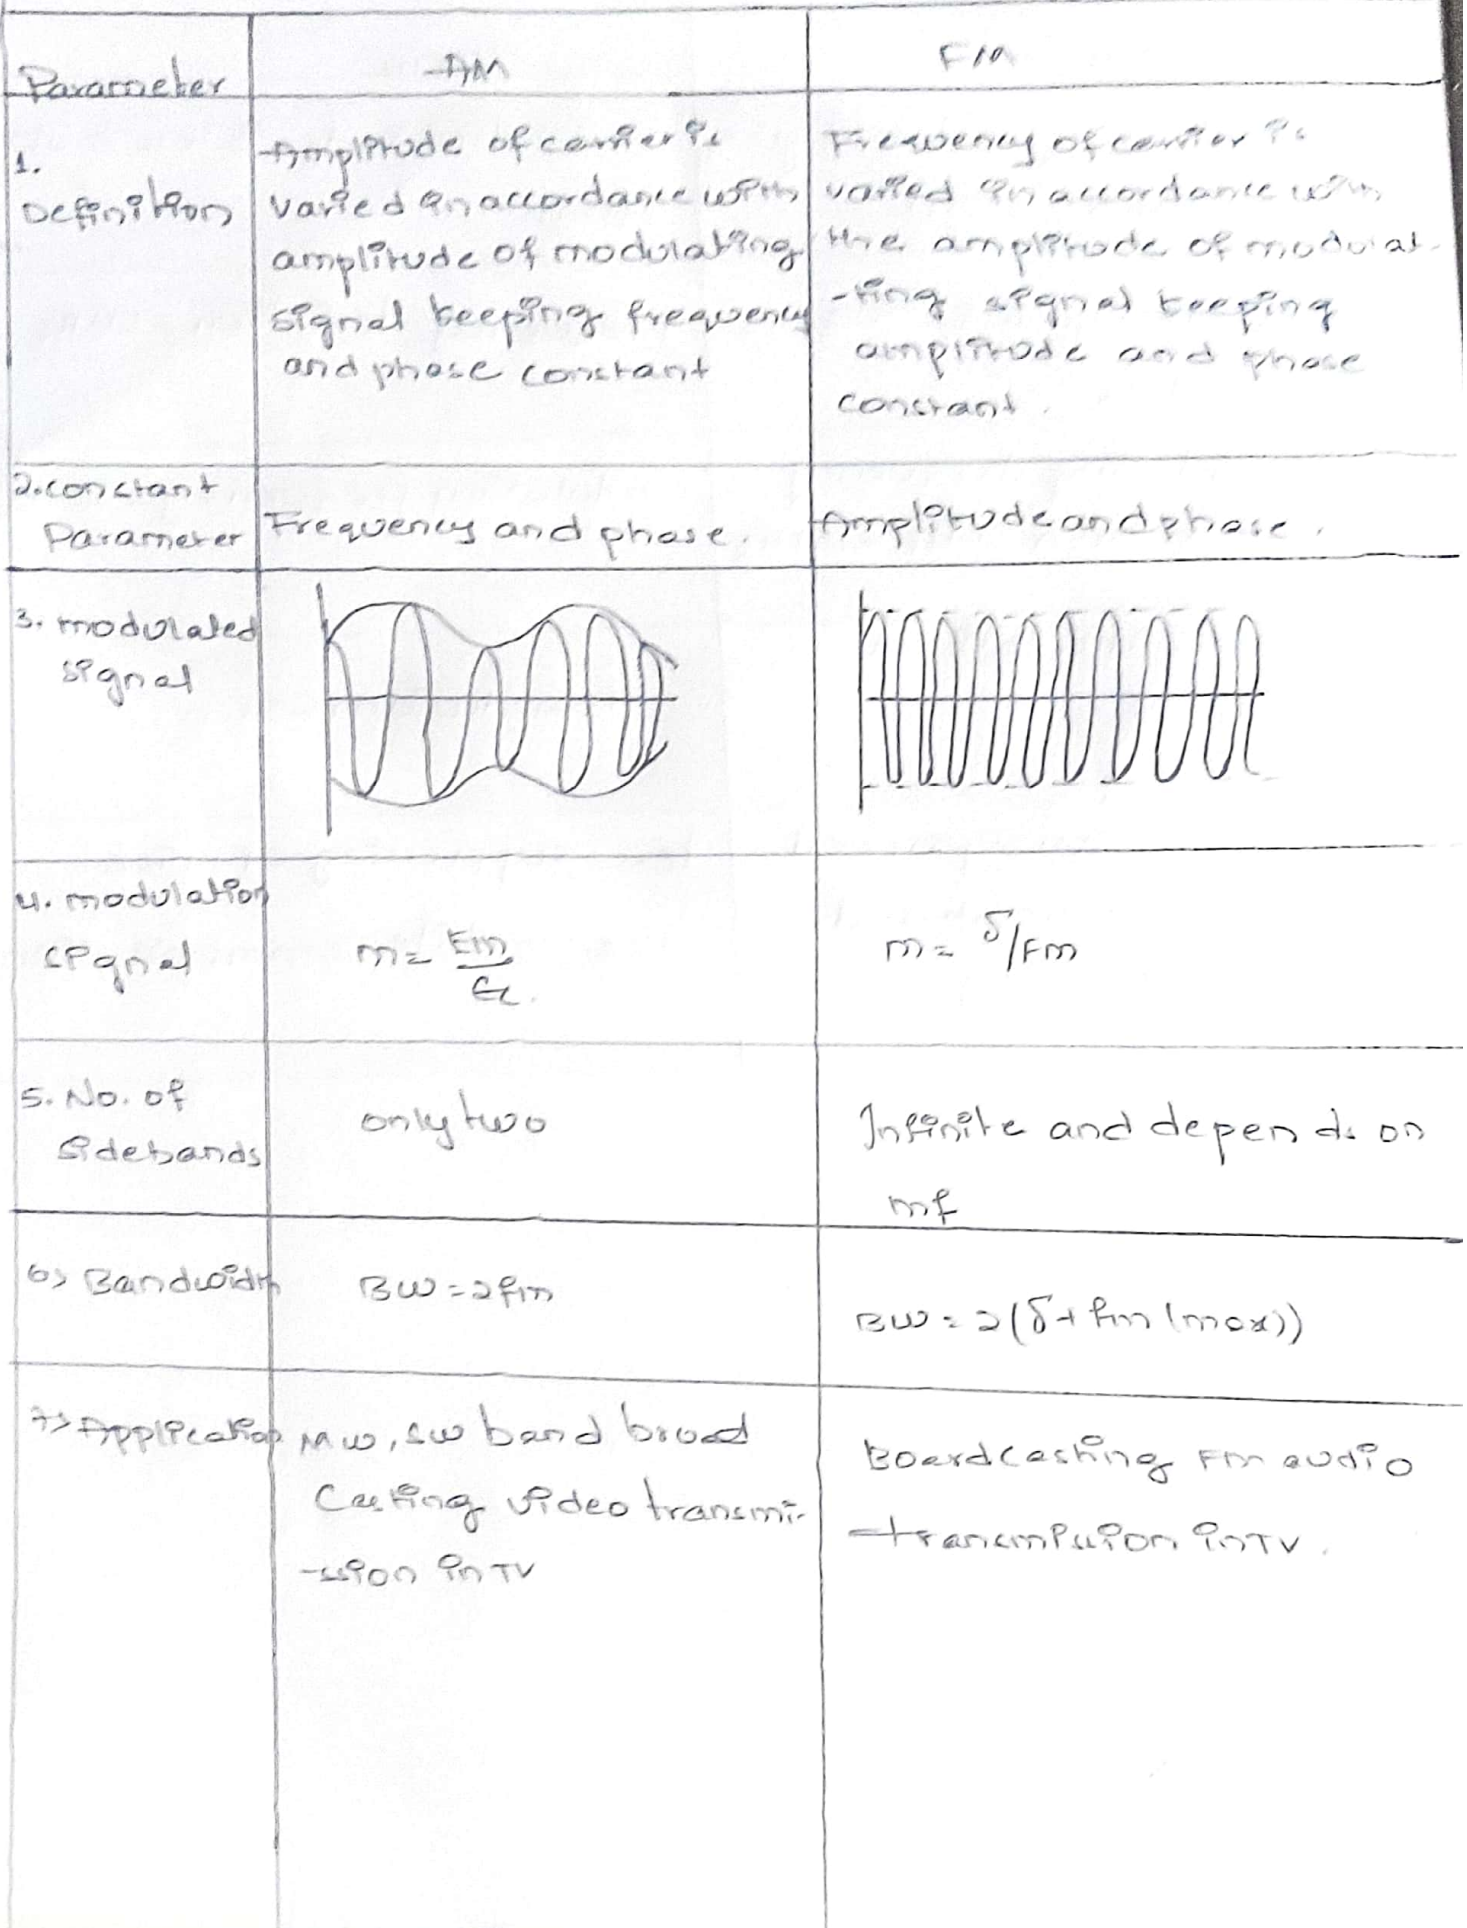 Parameter
AM
FM
1.
Definition
Amplitude of carrier is
varied in accordance with
amplitude of modulating
signal keeping frequency
and phase constant
Frequency of carrier is
varied in accordance with
the amplitude of modulat-
-ting signal keeping
amplitude and phase
constant.
2.constant
Parameter
Frequency and phase.
Amplitude and phase.
3. modulated
signal
4. modulation
signal
m= Em
Ec.
m= δ/Fm
5. No. of
sidebands
only two
Infinite and depends on
mf
6) Bandwidth
BW=2fm
BW=2(δ+fm(max))
7) Application
MW, SW band broad
Casting video transmi-
-ssion in TV
Boardcasting FM audio
transmission in TV.